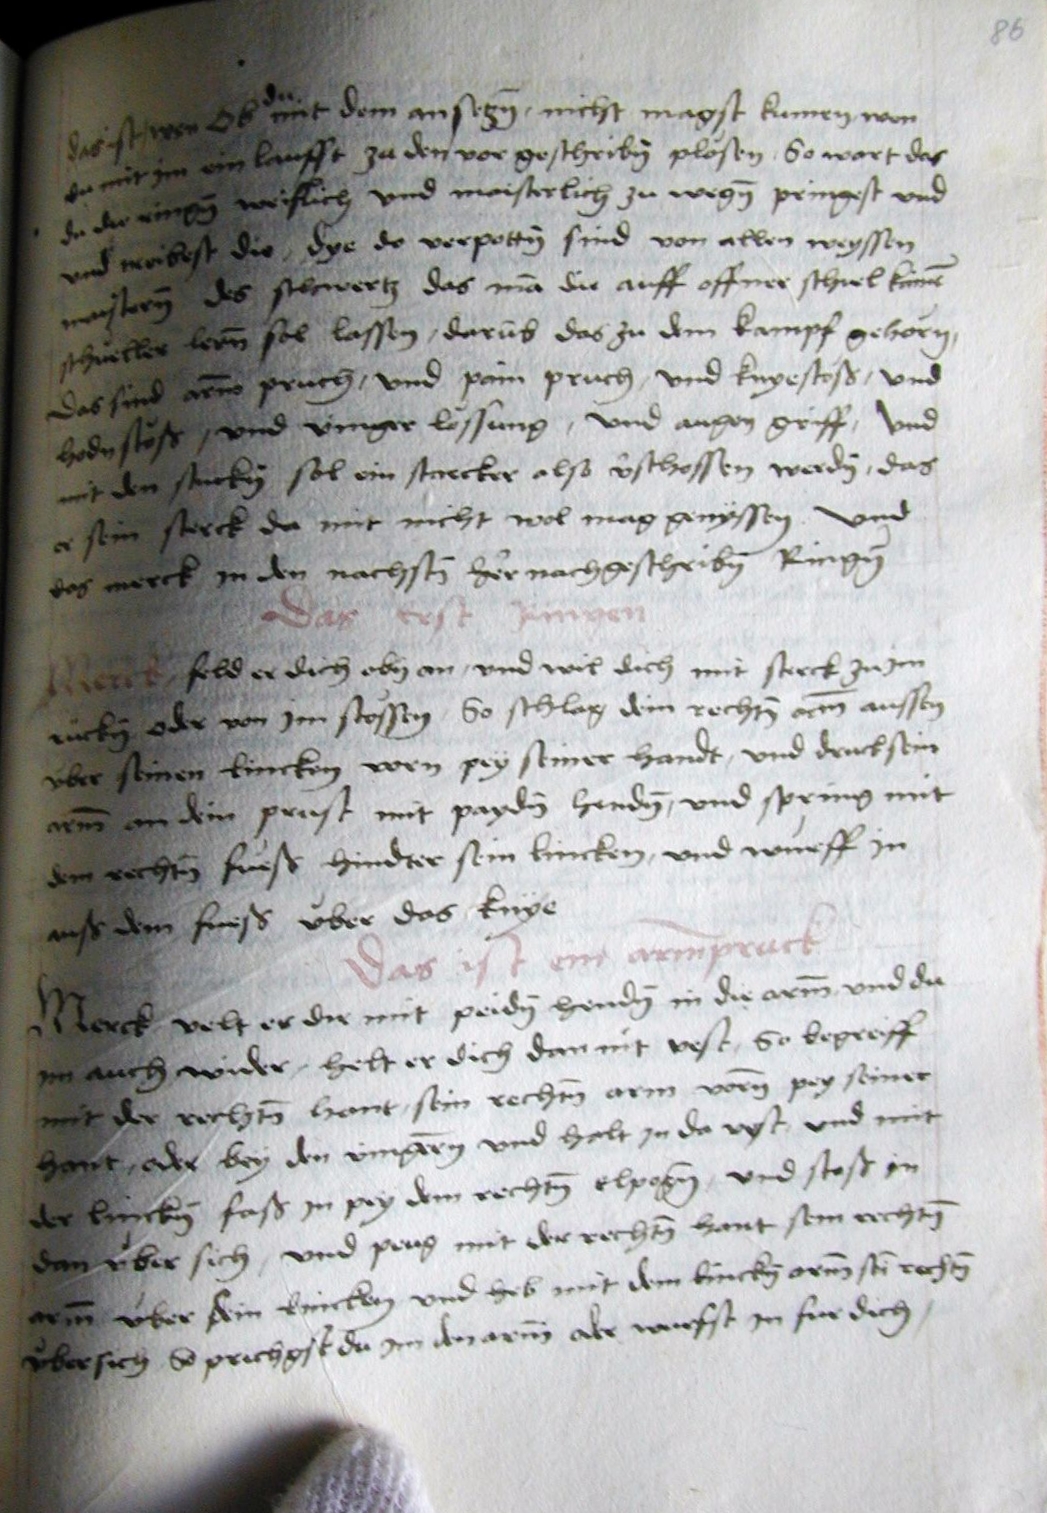 86
das ist wen Ob du mit dem ansetzn̄ nicht magst kumen wen
du mit im ein laufft zu den vor geschribn̄ plösen So wart das
du die ringn̄ weislich und maisterlich zu wegn̄ pringest und
und treibest die, dye do verpottn̄ sind von allen weyssen
maistern̄ des schwertz das mā die auff offner schuel kainē
schueller lern̄ sol lassen, darūb das zu dem kampf gehörn,
Das sind arm pruch, und pain pruch, und knyestöß, und
hodn stöß, und vinger lössung, und augen griff, Und
mit den stuckn̄ sol ein starcker also v̄schossen werdn̄, das
er sein sterck da mit nicht wol mag genyssen Und
das merck in den nachstn̄ her nachgeschribn̄ Ringn̄
Das erst ringen
Merck, feld er dich obn̄ an, und wil dich mit sterck zu im
ruckn̄ oder von im stossen, So schlag dein rechtn̄ arm̄ aussen
uber seinen lincken vorn pey seiner handt, und druck sein
arm̄ an dein prust mit paydn̄ hendn̄, und spring mit
dem rechtn̄ fueß hindter sein lincken, und wurff in
auß dem fueß über das knye
Das ist ein arm̄pruck
Merck velt er dir mit peidn̄ hendn̄ in die arm̄ und du
im auch wider, helt er dich dan nit vest, So begreiff
mit der rechtn̄ hant, sein rechtn̄ arm vorn̄ pey seiner
hant, oder bey den vingern̄ und halt in da vest, und mit
der linckn̄ faß in pey dem rechtn̄ elpogn̄, und stoß in
dan über sich, und peug mit der rechtn̄ hant sein rechtn̄
arm̄ über dein lincken und heb mit dem linckn̄ arm̄ sei rechtn̄
übersich So prichgst du im den arm̄ oder wurfst in fur dich,